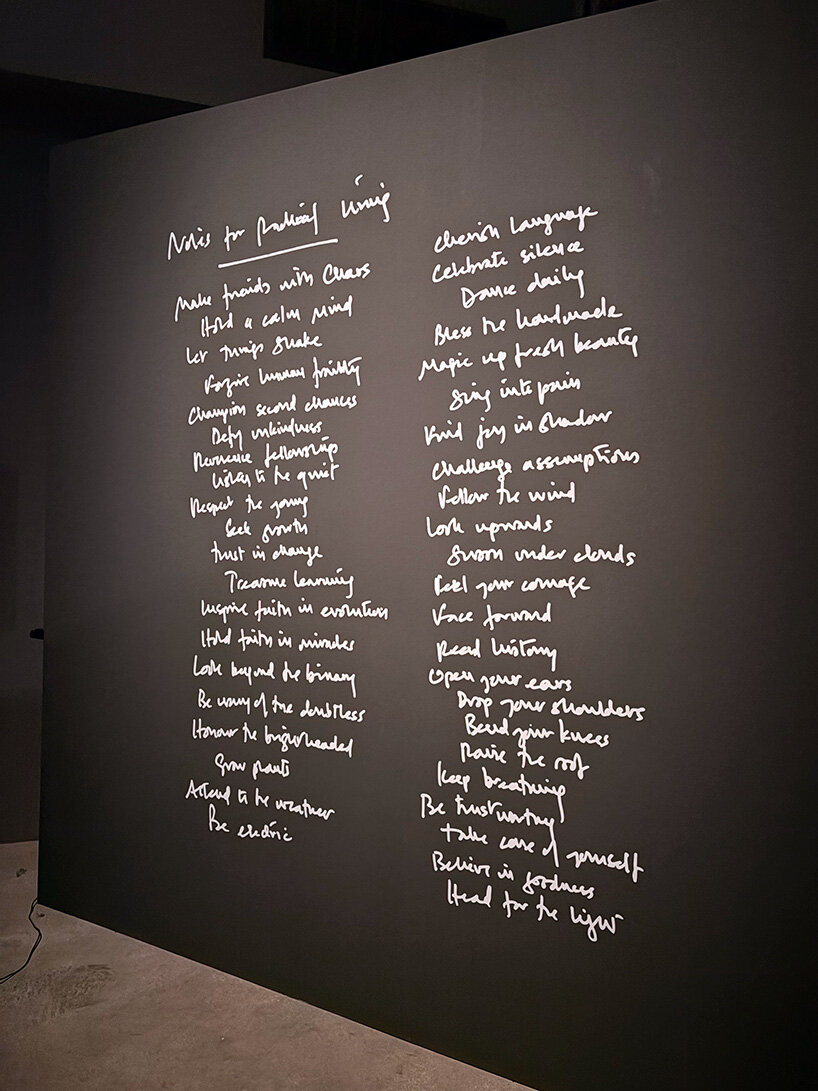 Notes for Radical Living
Make friends with Chaos
Hold a calm mind
Let things shake
Forgive human frailty
Champion second chances
Defy unkindness
Reverence fellowship
Listen to the quiet
Respect the young
Seek growth
Trust in change
Treasure learning
Inspire faith in evolution
Hold faith in miracles
Look beyond the binary
Be wary of the doubtless
Honour the bigger-headed
Grow plants
Attend to the weather
Be electric
Cherish language
Celebrate silence
Dance daily
Bless the handmade
Magic up fresh beauty
Sing into pain
Find joy in shadow
Challenge assumptions
Follow the wind
Look upwards
Swoon under clouds
Feel your courage
Face forward
Read history
Open your ears
Drop your shoulders
Bend your knees
Raise the roof
Keep breathing
Be trustworthy
Take care of yourself
Believe in goodness
Head for the light